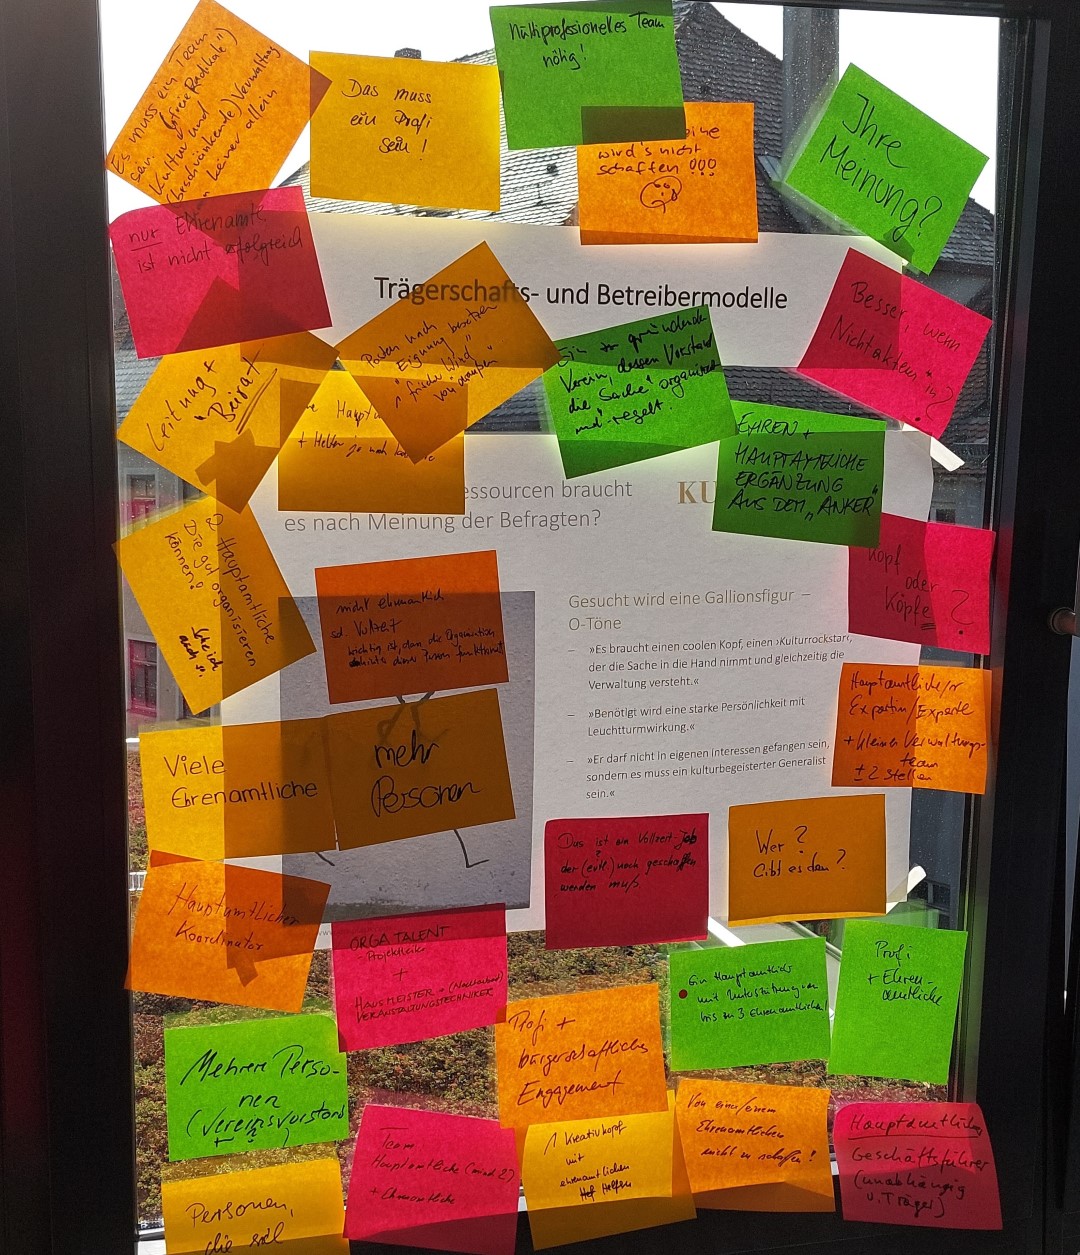 Es muss ein Team
sein (freie Radikale")
Kultur und
(beschränkende) Verwaltung
keiner allein
Das muss
ein Profi
sein!
Multiprofessionelles Team
nötig!
eine
wird's nicht
schaffen !!!
Ihre
Meinung?
nur Ehrenamt
ist nicht erfolgreich
Trägerschafts- und Betreibermodelle
Besser, wenn
Nichtakteur*in?
Leitung +
"Beirat"
nach
Eignung besetzen
"frischer Wind"
von draußen
Haupt
+ Helfer je nach
Ein zu gründender
Verein, dessen Vorstand
die Sache" organisiert
und regelt.
EHREN +
HAUPTAMTLICHE
ERGÄNZUNG
AUS DEM „ANKER"
essourcen braucht
es nach Meinung der Befragten?
KU
2 Hauptamtliche
Die gut organisieren
können!
nicht ehrenamtlich
sd. Vollzeit
wichtig ist, dass die Organisation
dieser Person funktioniert
Kopf
oder
Köpfe?
Gesucht wird eine Gallionsfigur –
O-Töne
– »Es braucht einen coolen Kopf, einen ›Kulturrockstar‹,
der die Sache in die Hand nimmt und gleichzeitig die
Verwaltung versteht.«
– »Benötigt wird eine starke Persönlichkeit mit
Leuchtturmwirkung.«
– »Er darf nicht in eigenen Interessen gefangen sein,
sondern es muss ein kulturbegeisterter Generalist
sein.«
Hauptamtliche/r
Expertin/Experte
+ kleines Verwaltungs-
team
± 2 Stellen
Viele
Ehrenamtliche
mehr
Personen
Das ist ein Vollzeit-Job
der (evtl.) noch geschaffen
werden muß.
Wer?
Gibt es den?
Hauptamtlicher
Koordinator
ORGATALENT
- Projektleiter
+
HAUSMEISTER
VERANSTALTUNGSTECHNIKER
Ein Hauptamtlicher
mit Unterstützung von
bis zu 3 Ehrenamtlichen!
Profi
+ Ehren-
amtliche
Profi +
bürgerschaftliches
Engagement
Mehrere Perso-
nen
(Vereinsvorstand
?)
Team
Hauptamtliche (mind. 2)
+ Ehrenamtliche
1 Kreativkopf
mit
ehrenamtlichen
Helfern
Von einer/einem
Ehrenamtlichen
nicht zu schaffen!
Hauptamtlicher
Geschäftsführer
(unabhängig
v. Träger)
Personen,
die